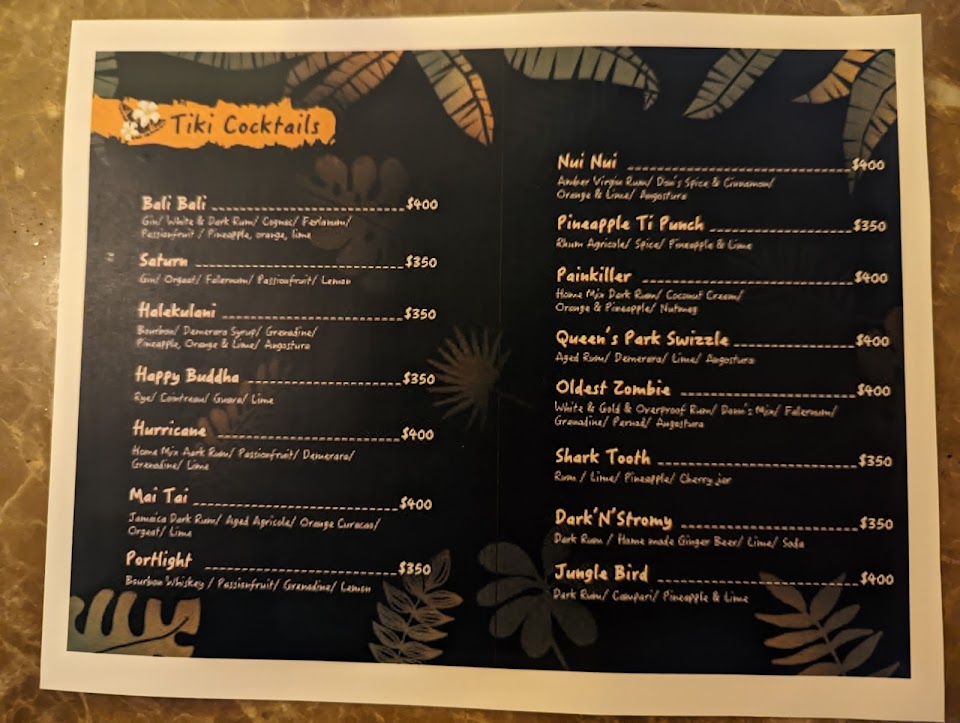 Tiki Cocktails
Bali Bali $400
Gin/ White & Dark Rum/ Cognac/ Ferlanum/
Passionfruit / Pineapple, orange, lime
Saturn $350
Gin/ Orgeat/ Falernum/ Passionfruit/ Lemon
Halekulani $350
Bourbon/ Demerara Syrup/ Grenadine/
Pineapple, Orange & Lime/ Angostura
Happy Buddha $350
Rye/ Cointreau/ Guava/ Lime
Hurricane $400
Home Mix Aark Rum/ Passionfruit/ Demerara/
Grenadine/ Lime
Mai Tai $400
Jamaica Dark Rum/ Aged Agricole/ Orange Curacao/
Orgeat/ Lime
Portlight $350
Bourbon Whiskey / Passionfruit/ Grenadine/ Lemon
Nui Nui $400
Amber Virgin Rum/ Don's Spice & Cinnamon/
Orange & Lime/ Angostura
Pineapple Ti Punch $350
Rhum Agricole/ Spice/ Pineapple & Lime
Painkiller $400
Home Mix Dark Rum/ Coconut Cream/
Orange & Pineapple/ Nutmeg
Queen's Park Swizzle $400
Aged Rum/ Demerara/ Lime/ Angostura
Oldest Zombie $400
White & Gold & Overproof Rum/ Donn's Mix/ Falernum/
Grenadine/ Pernod/ Angostura
Shark Tooth $350
Rum / Lime/ Pineapple/ Cherry jar
Dark'N'Stromy $350
Dark Rum / Home made Ginger Beer/ Lime/ Soda
Jungle Bird $400
Dark Rum/ Campari/ Pineapple & Lime